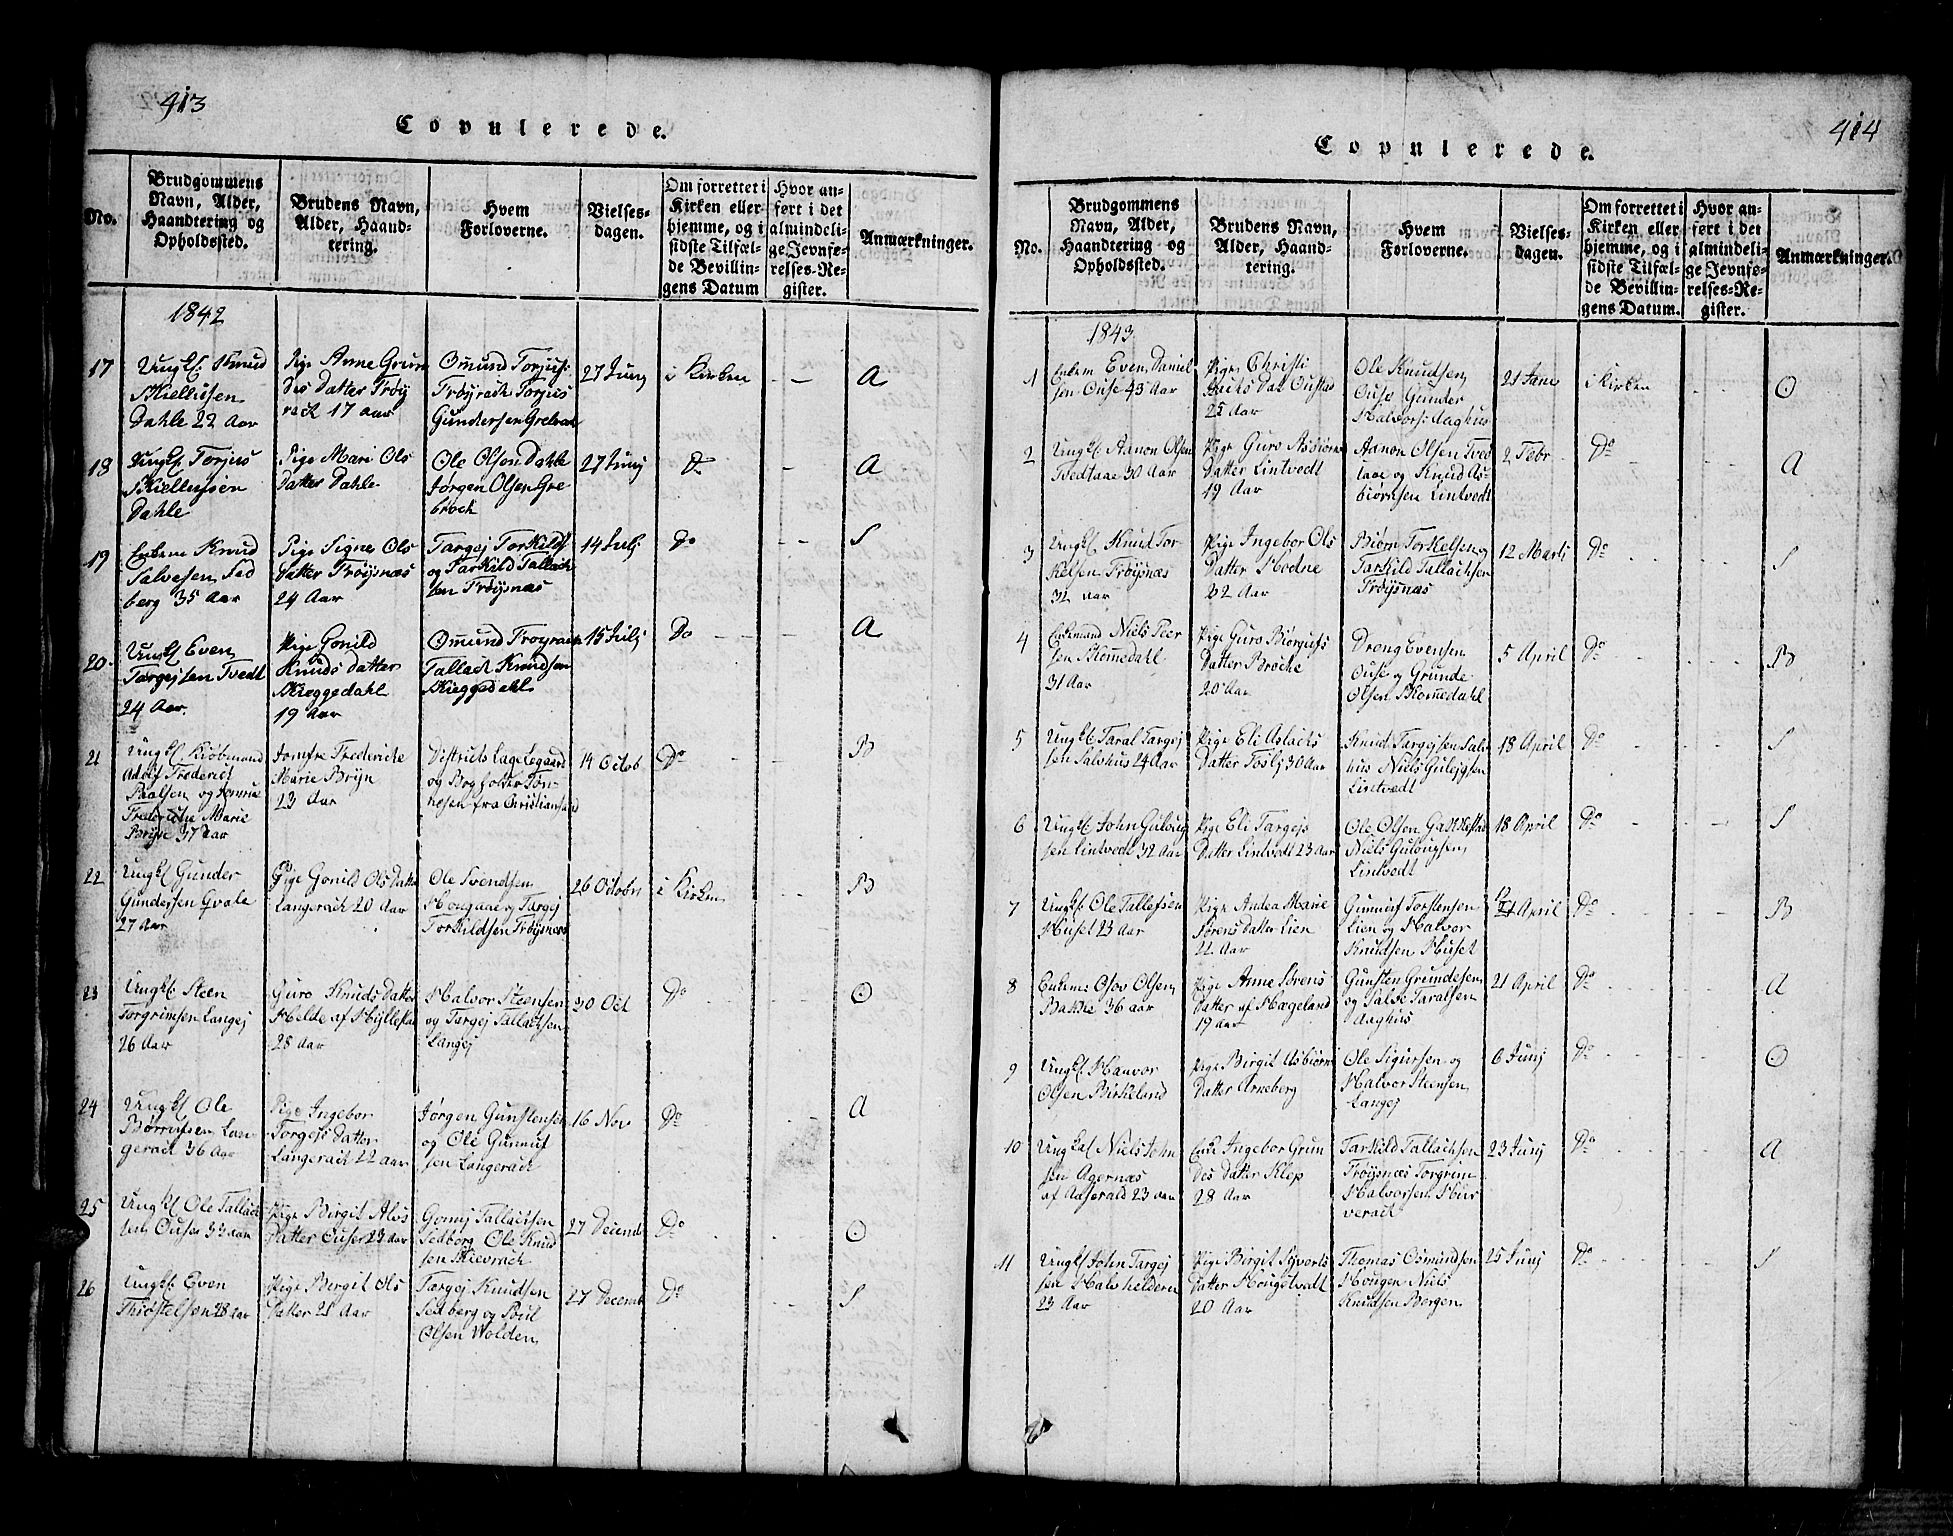 413
Copulerede.
No.
Brudgommens
Navn, Alder,
Haandtering og
Opholdssted.
Brudens Navn,
Alder, Haand-
tering.
Hvem
Forloverne.
Vielses-
dagen.
Om forrettet i
Kirken eller
hjemme, og i
sidste Tilfæl-
de Bevillin-
gens Datum
Hvor an-
ført i det
almindeli-
ge Jevnfø-
relses-Re-
gister.
Anmærkninger.
1842
17
Ungk. Knud
Kiellufsen
Dahle 22 Aar
Pige Anne Grun
des Datter Trøy
rack 17 aar
Omund Torjus:
Trøyrack Torjus
Gundersen
27 Junj
i Kirken
A
18
Ungk. Torjus
Kiellufsen
Dahle
Pige Mari Ols
Datter Dahle
Ole Olsen Dahle
Jørgen Olsen Gre
brock
27 Junj
Do
A
19
Enkem Knud
Salvesen Sed
berg 35 Aar
Pige Signe Ols
Datter Trøysnæs
24 Aar
Targej Torkilds
og Tarkild Tallach
sen Trøysnæs
14 Julj
Do
S
20
Ungk Even
Targejsen Tvedt
24 Aar
Pige Gonild
Knuds Datter
Kieggedahl
19 Aar
Omund Trøyrack
Tallack Knudsen
Kieggedahl
15 Julj
Do
A
21
Ungk Kiøbmand
Adolf Frederich
Paalsen og Jomfrue
Frederiche Marie
Brÿn 37 aar
Jomfru Frederiche
Marie Brÿn
23 Aar
Districts Læge Legaard
og Bogholder Tøn-
nesen fra Christiansand
14 Octob
Do
B
22
Ungk Gunder
Gundersen Qvale
27 Aar
Pige Gonild Ols Datter
Langerack 20 Aar
Ole Svendsen
Hougaa og Targej
Torkildsen Trøysnæs
26 Octobr
i Kirken
B
23
Ungk Steen
Torgrimsen Langej
26 Aar
Guro Knuds Datter
Helde af Hyllestad
28 Aar
Halvor Steensen
og Targej Tallachsen
Langej
30 Oct
Do
O
24
Ungk Ole
Børrufsen Lan-
gerack 36 Aar
Pige Ingebor
Torgejs Datter
Langerack 22 aar
Jørgen Gunstensen
og Ole Gunnuf
sen Langerack
16 Nov
Do
A
25
Ungk Ole Tallach
sen Ouse 33 aar
Pige Birgit Alvs
Datter Ouse 23 aar
Gonnj Tallachsen
Sedberg Ole Knud
sen Kievrack
27 Decemb
Do
O
26
Ungk Even
Thiostelsen 28 aar
Pige Bergit Ols
Datter 28 Aar
Targej Knudsen
Sedberg og Poul
Olsen Wolden
27 Decemb
Do
S
414
Copulerede.
No.
Brudgommens
Navn, Alder,
Haandtering og
Opholdssted.
Brudens Navn,
Alder, Haand-
tering.
Hvem
Forloverne.
Vielses-
dagen.
Om forrettet i
Kirken eller
hjemme, og i
sidste Tilfæl-
de Bevillin-
gens Datum.
Hvor an-
ført i det
almindeli-
ge Jevnfø-
relses-Re-
gister.
Anmærkninger.
1843
1
Enkem Even Daniel
sen Ouse 43 Aar
Pige Christi
25 Aar
Ole Knudsen
Ouse Gunder
Halvors: Aaghus
21 Jan
i Kirken
O
2
Ungk Aanon Olsen
Tvedtaae 30 Aar
Pige Guro Asbiørns
Datter Lintvedt
19 Aar
Aanon Olsen Tved
taae og Knud As-
biørnsen Lintvedt
2 Febr
Do
A
3
Ungk Knud Tor
kelsen Trøysnæs
32 aar
Pige Ingebor Ols
Datter Hodne
22 Aar
Biørn Torkelsen og
Tarkild Tallachsen
Trøysnæs
12 Marti
Do
S
4
Enkemand Niels Peer
sen Skomedahl
31 Aar
Pige Guro Biorgufs
Datter Brocke
20 Aar
Dreng Evensen
Ouse og Grunde
Olsen Skomedahl
5 April
Do
B
5
Ungk Taral Targej
sen Salshus 24 Aar
Pige Eli Aslachs
Datter Foslj 30 Aar
Knud Targejsen Sals
hus Niels Gulejgsen
Lintvedt
18 April
Do
S
6
Ungk John Guloug
sen Lintvedt 32 Aar
Pige Eli Targejs
Datter Lintvedt 23 Aar
Ole Olsen
Niels Gulougsen
Lintvedt
18 April
Do
S
7
Ungk Ole Tallefsen
Huset 23 Aar
Pige Andea Marie
Sørens Datter Lien
22 Aar
Gunnuf Torstensen
Lien og Halvor
Knudsen Huset
21 April
Do
B
8
Enkem: Osov Olsen
Bakke 36 aar
Pige Anne Sørens
Datter af Hægeland
19 Aar
Gunsten Grundesen
og Salve Taralsen
Aaghus
21 April
Do
A
9
Ungk Haavor
Olsen Birkeland
Pige Birgit Asbiørns
Datter Arneberg
Ole Sigursen og
Halvor Steensen
Langej
6 Junj
Do
O
10
Ungk Niels John
sen Agernæs
af Aaserald 23 aar
Enke Ingebor Grun
des Datter Klep
28 Aar
Tarkild Tallachsen
Trøysnæs Torgrim
Halvorsen Hur
verack
23 Junj
Do
A
11
Ungk John Targej
sen Halvshelderen
23 Aar
Pige Birgit Syverts
Datter Hougetvedt
20 Aar
Thomas Osmundsen
Hougen Niels
Knudsen Bergen
25 Junj
Do
S